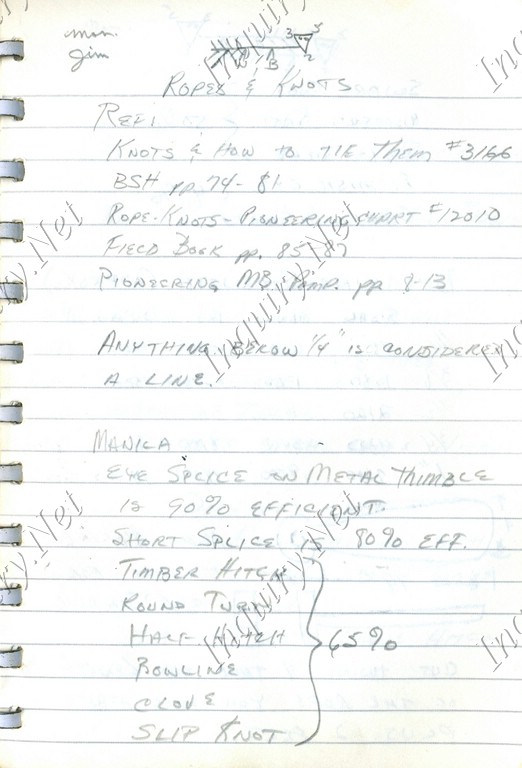 mon.
Jim
3 5
1 2
A B
ROPES & KNOTS
REF:
KNOTS & HOW TO TIE THEM #3166
BSH pp 74-81
ROPE-KNOTS-PIONEERING CHART #12010
FIELD BOOK pp. 85-87
PIONEERING MB. PAMP. pp 8-13
ANYTHING BELOW 1/4" IS CONSIDERED
A LINE.
MANILA
EYE SPLICE ON METAL THIMBLE
IS 90% EFFICIENT.
SHORT SPLICE IS 80% EFF.
TIMBER HITCH
ROUND TURN
HALF HITCH 65%
BOWLINE
CLOVE
SLIP KNOT
Inquiry.Net